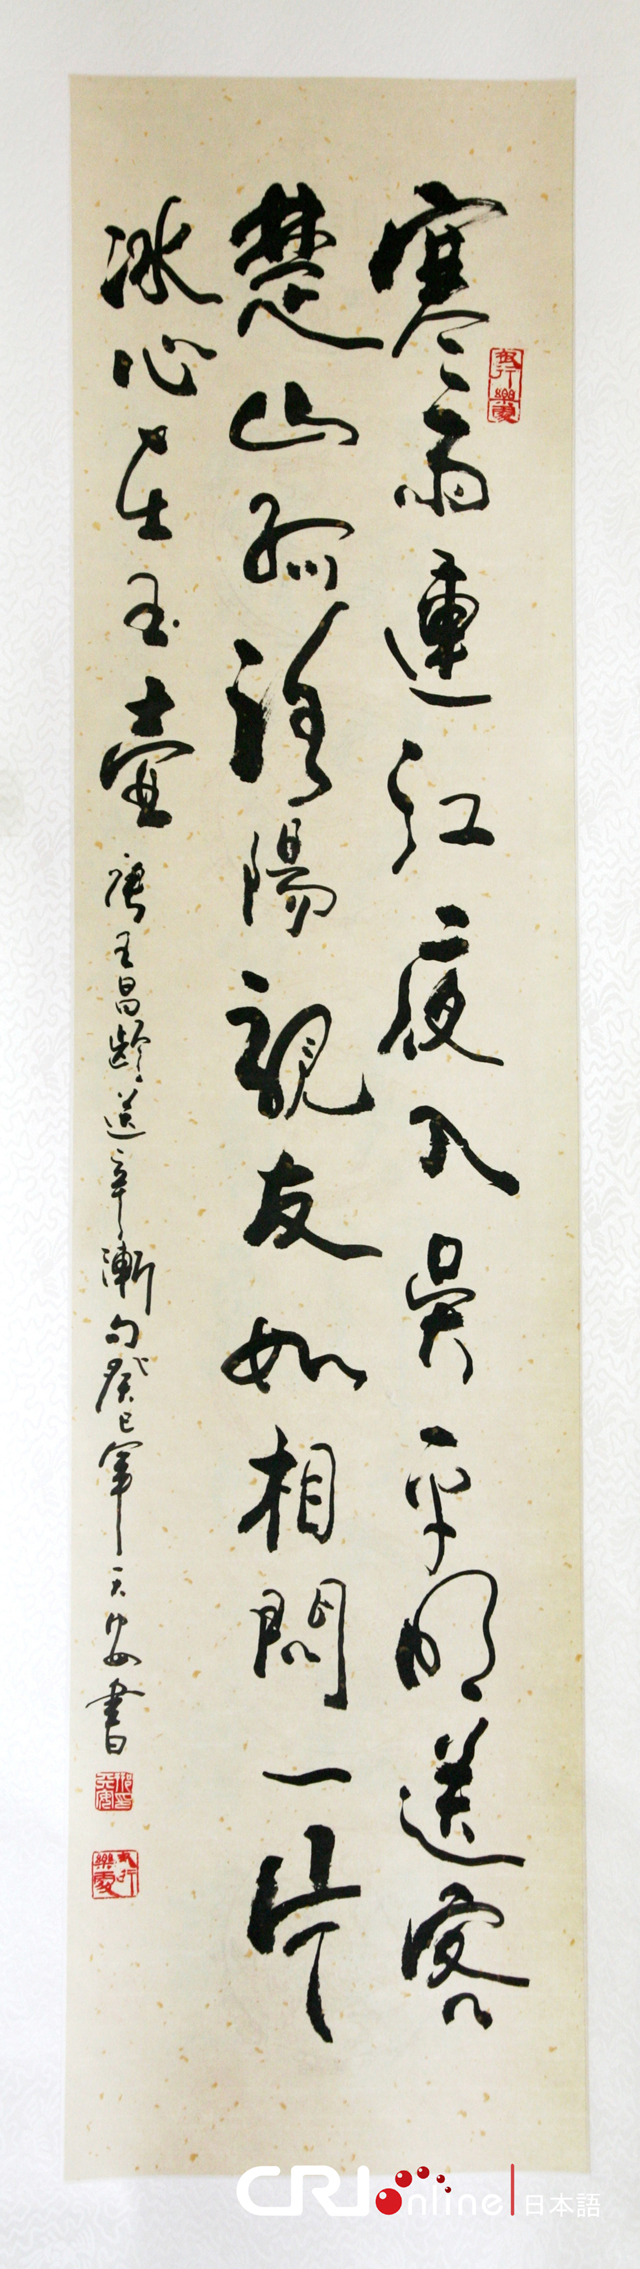 寒雨連江夜入吳平明送客
楚山孤洛陽親友如相問一片
冰心在玉壺 唐王昌齡送辛漸句癸巳年天安書
CRI online 日本語